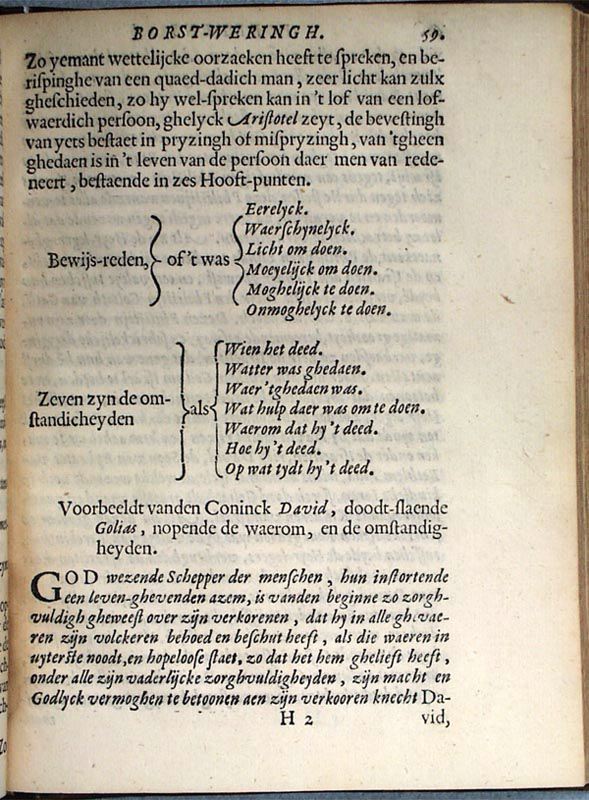 BORST-WERINGH. 59.
Zo yemant wettelijcke oorzaeken heeft te ſpreken, en be-
riſpinghe van een quaed-dadich man, zeer licht kan zulx
gheſchieden, zo hy wel-ſpreken kan in 't lof van een lof-
waerdich perſoon, ghelyck Ariſtotel zeyt, de beveſtingh
van yets beſtaet in pryzingh of miſpryzingh, van 'tgheen
ghedaen is in 't leven van de perſoon daer men van rede-
neert, beſtaende in zes Hooft-punten.
Bewijs-reden, of 't was
Eerelyck.
Waerſchynelyck.
Licht om doen.
Moeyelijck om doen.
Moghelijck te doen.
Onmoghelyck te doen.
Zeven zyn de om-
ſtandicheyden
als
Wien het deed.
Watter was ghedaen.
Waer 'tghedaen was.
Wat hulp daer was om te doen.
Waerom dat hy 't deed.
Hoe hy 't deed.
Op wat tydt hy 't deed.
Voorbeeldt vanden Coninck David, doodt-ſlaende
Golias, nopende de waerom, en de omſtandig-
heyden.
GOD wezende Schepper der menſchen, hun inſtortende
een leven-ghevenden azem, is vanden beginne zo zorgh-
vuldigh gheweeſt over zijn verkorenen, dat hy in alle ghevae-
ren zijn volckeren behoed en beſchut heeft, als die waeren in
uyterſte noodt, en hopelooſe ſtaet, zo dat het hem ghelieft heeft,
onder alle zijn vaderlijcke zorghvuldigheyden, zijn macht en
Godlyck vermoghen te betoonen aen zijn verkooren knecht Da-
H 2 vid,